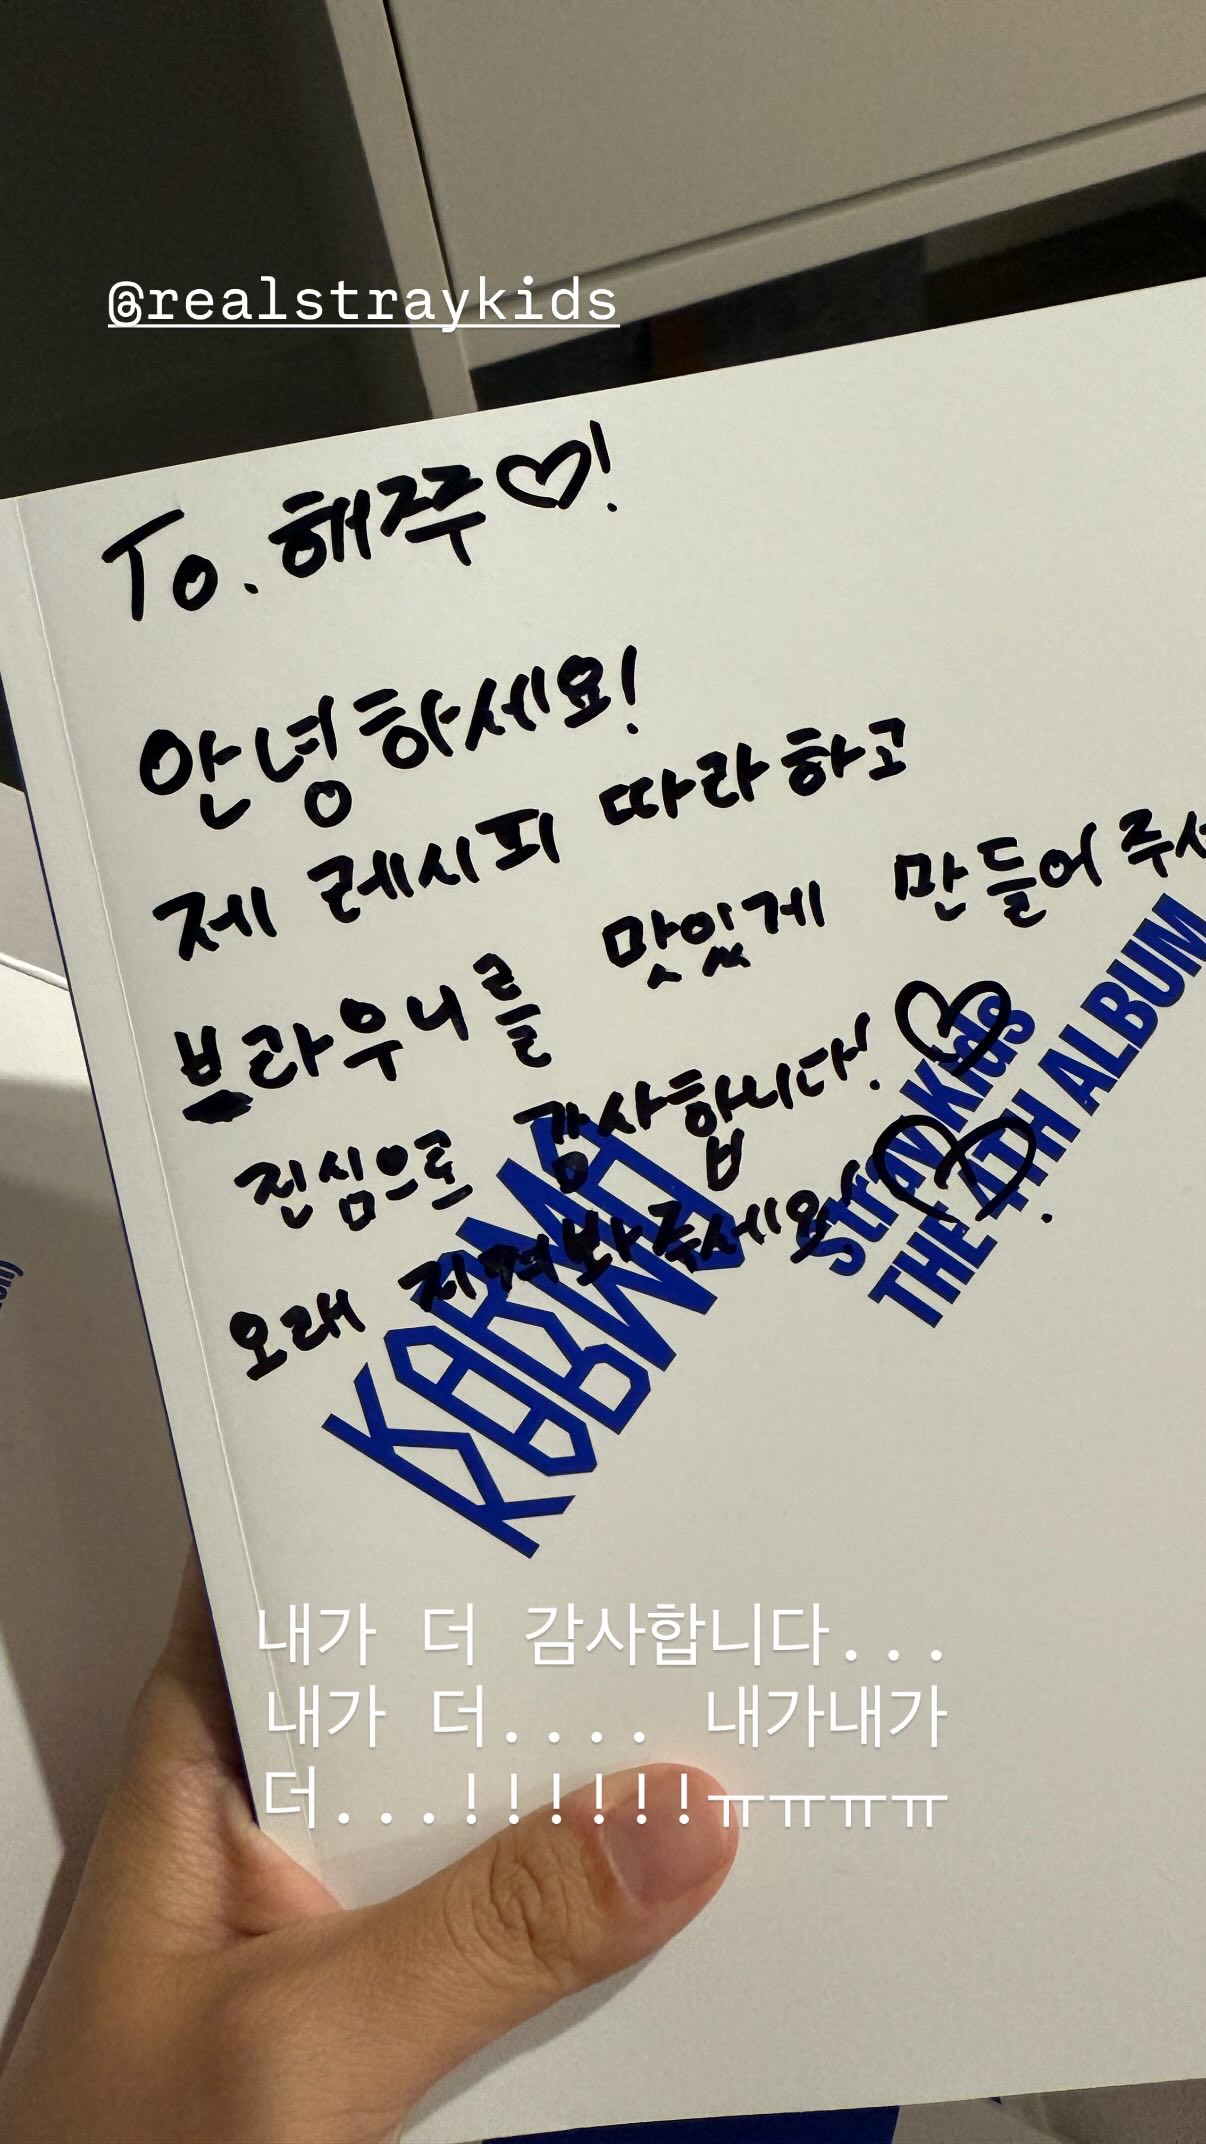 @realstraykids
To. 해쭈♡!
안녕하세요!
제 레시피 따라하고
브라우니를 맛있게 만들어 주셔
진심으로 감사합니다! ♡
오래 지켜봐주세요 ♡.
KARMA
Stray Kids
THE 4TH ALBUM
내가 더 감사합니다...
내가 더.... 내가내가
더...!!!!!!ㅠㅠㅠㅠ